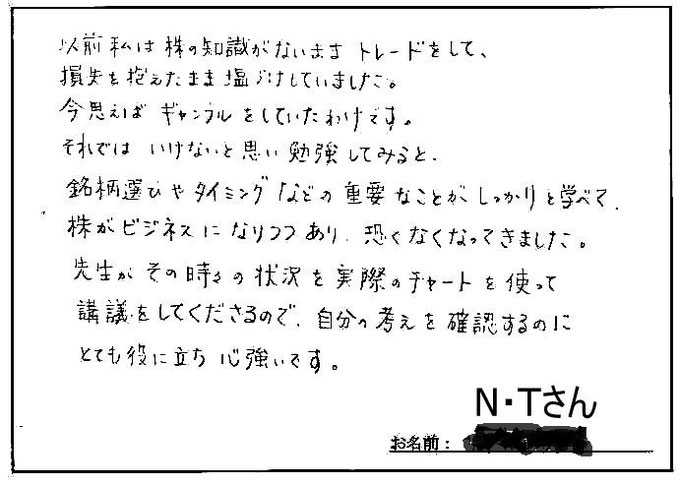 以前私は株の知識がないままトレードをして、
損失を抱えたまま塩づけしていました。
今思えばギャンブルをしていたわけです。
それではいけないと思い勉強してみると、
銘柄選びやタイミングなどの重要なことがしっかりと学べて、
株がビジネスになりつつあり、恐くなくなってきました。
先生がその時々の状況を実際のチャートを使って
講議をしてくださるので、自分の考えを確認するのに
とても役に立ち心強いです。
N・Tさん
お名前：